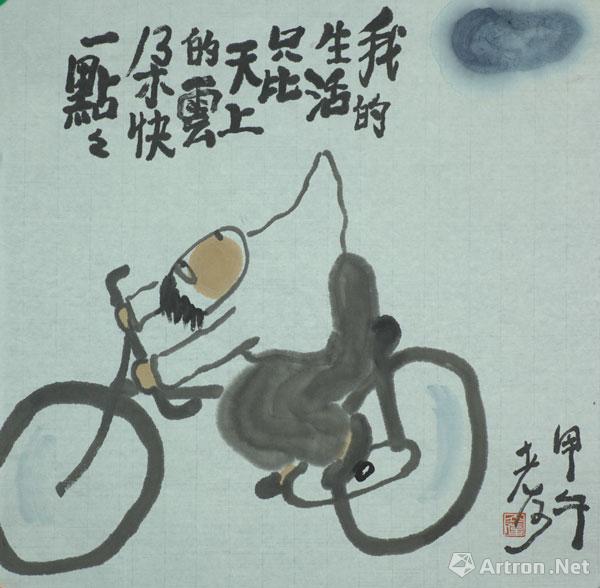 我的
生活
只比
天上
的雲
朵快
一點々
甲午
老
Artron.Net